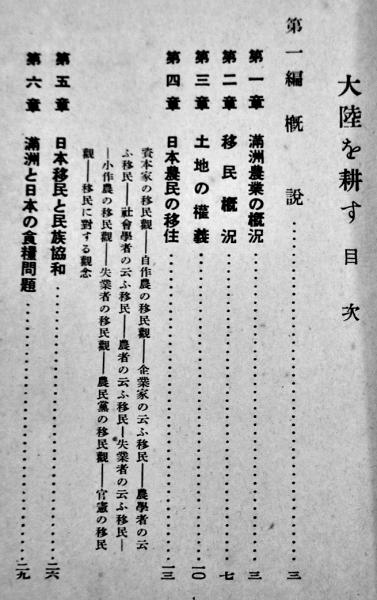 大陸を耕す 目次
第一編 概説……三
第一章 滿洲農業の概況……三
第二章 移民概況……七
第三章 土地の權義……一〇
第四章 日本農民の移住……一三
資本家の移民觀――自作農の移民觀――企業家の云ふ移民――農學者の云
ふ移民――社會學者の云ふ移民――農者の云ふ移民――失業者の云ふ移民―
―小作農の移民觀――失業者の移民觀――農民黨の移民觀――官憲の移民
觀――移民に對する觀念
第五章 日本移民と民族協和……二六
第六章 滿洲と日本の食糧問題……二九